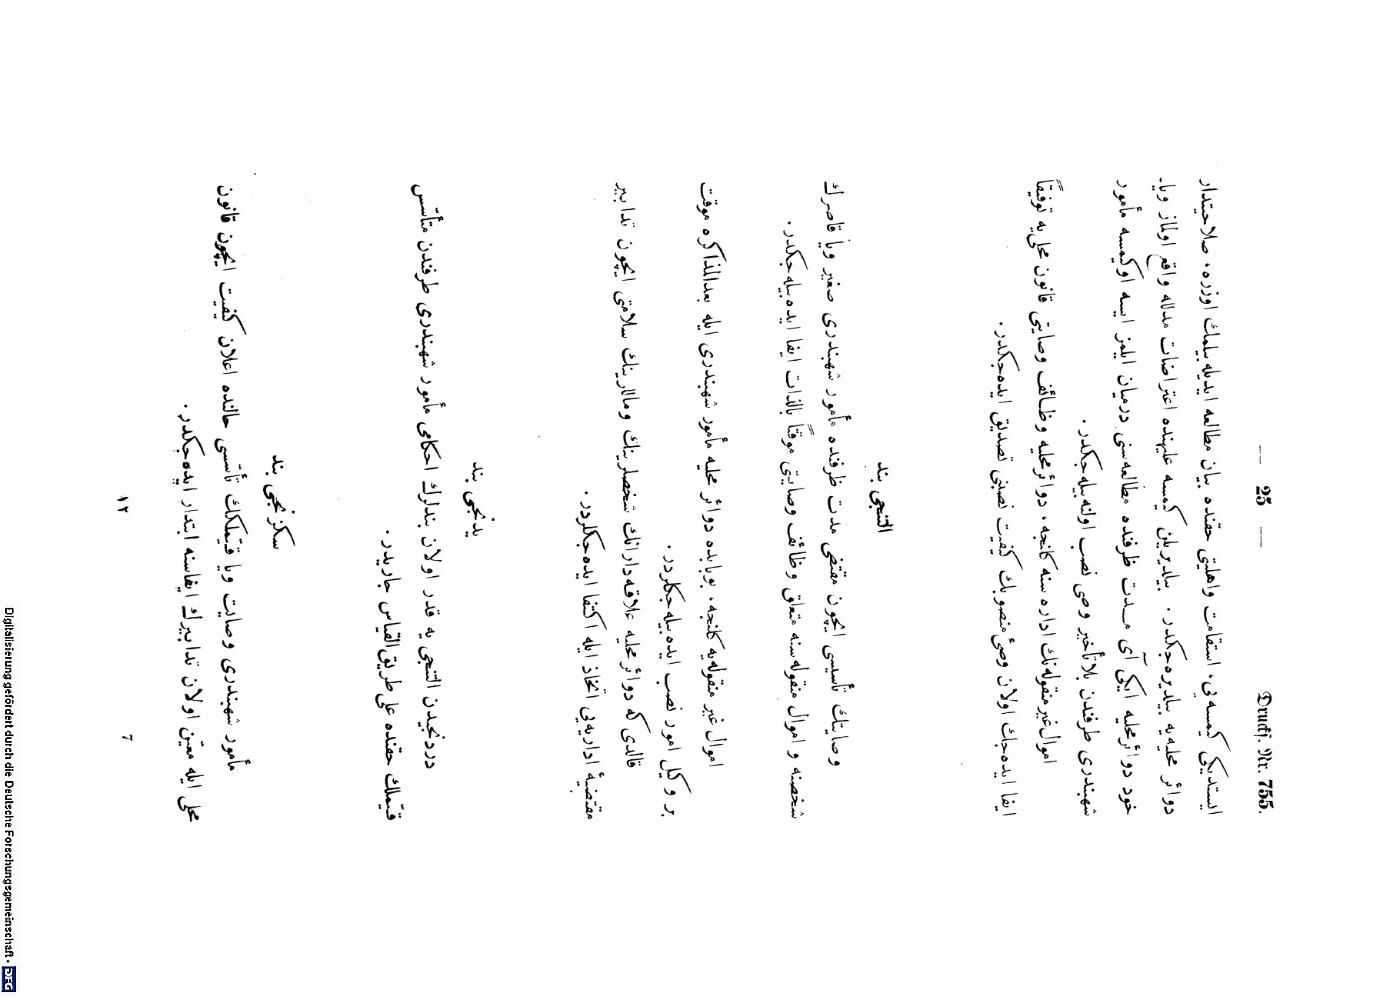 — 25 —
Druckf. Nr. 755.
ایستدیکی کیمسه‌یی، استقامت واهلیتی حقنده بیان مطالعه ایدیله‌بیلمك اوزره، صلاحیتدار
دوائر محلیه‌یه بیلدیره‌جکدر. بیلدیریلن کیمسه علیهنده اعتراضات مدلله واقع اولماز ویا
خود دوائر محلیه ایکی آی مدت ظرفنده مطالعه‌سنی درمیان ایلمز ایسه اوکیمسه مأمور
شهبندری طرفندن بلا تأخیر وصی نصب اولنه‌بیله‌جکدر.
اموال غیر منقوله‌نك اداره‌سنه کلنجه، دوائر محلیه وظائف وصایتی قانون محلی‌یه توفیقاً
ایفا ایده‌جك اولان وصیٔ منصوبك کیفیت نصبنی تصدیق ایده‌جکدر.
التنجی بند
وصایتك تأسیسی ایچون مقتضی مدت ظرفنده مأمور شهبندری صغیر ویا قاصرك
شخصنه و اموال منقوله‌سنه متعلق وظائف وصایتی موقتاً بالذات ایفا ایده‌بیله‌جکدر.
اموال غیر منقوله‌یه کلنجه، بوبابده دوائر محلیه مأمور شهبندری ایله بعدالمذاکره موقت
بر وکیل امور نصب ایده‌بیله‌جکلردر.
قالدی که دوائر محلیه علاقه‌دارانك شخصلرینك ومالارینك سلامتی ایچون تدابیر
مقتضیهٔ اداریه‌یی اتخاذ ایله اکتفا ایده‌جکلردر.
یدنجی بند
دردنجیدن التنجی‌یه قدر اولان بندلرك احکامی مأمور شهبندری طرفندن متأسّس
قیملك حقنده علی طریق‌القیاس جاریدر.
سکزنجی بند
مأمور شهبندری وصایت ویا قیملکك تأسّسی حالنده اعلان کیفیت ایچون قانون
محلی ایله معین اولان تدابیرك ایفاسنه ابتدار ایده‌جکدر.
7
١٢
Digitalisierung gefördert durch die Deutsche Forschungsgemeinschaft - DFG